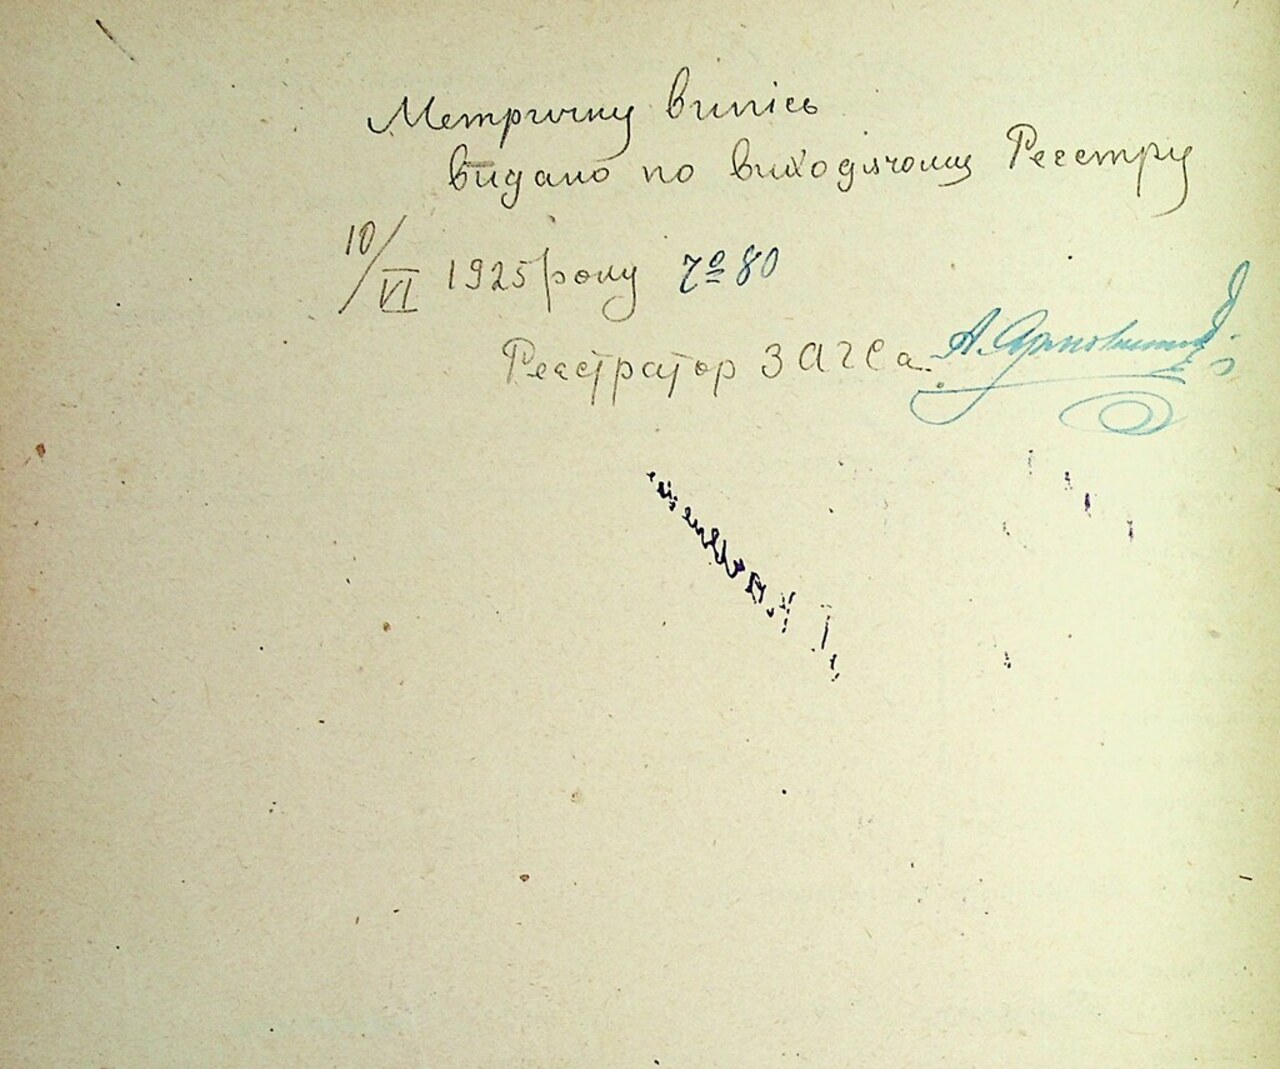 Метричну випісь
видано по виходячому Реестру
10/VI 1925 року № 80
Реєстратор ЗАГСа А.